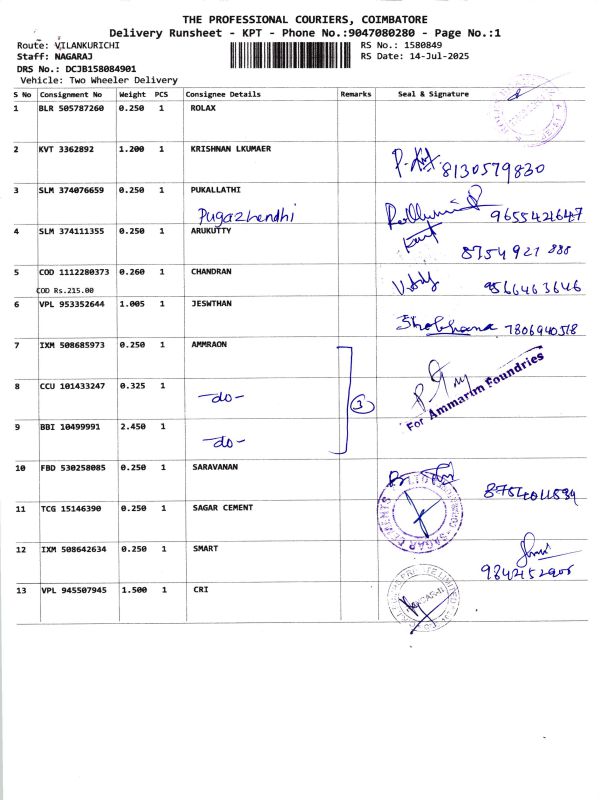 THE PROFESSIONAL COURIERS, COIMBATORE
Delivery Runsheet - KPT - Phone No.:9047080280 - Page No.:1
Route: VILANKURICHI
RS No.: 1580849
Staff: NAGARAJ
RS Date: 14-Jul-2025
DRS No.: DCJB158084901
Vehicle: Two Wheeler Delivery
S No Consignment No Weight PCS Consignee Details Remarks Seal & Signature
1 BLR 505787260 0.250 1 ROLAX
2 KVT 3362892 1.200 1 KRISHNAN LKUMAER
8130579830
3 SLM 374076659 0.250 1 PUKALLATHI
Pugazhendhi 9655421647
4 SLM 374111355 0.250 1 ARUKUTTY
8754921888
5 COD 1112280373 0.260 1 CHANDRAN
COD Rs.215.00
9566463646
6 VPL 953352644 1.005 1 JESWTHAN
Shobhana 7806940518
7 IXM 508685973 0.250 1 AMMRAON
8 CCU 101433247 0.325 1
-do- 3
For Ammarun Foundries
9 BBI 10499991 2.450 1
-do-
10 FBD 530258085 0.250 1 SARAVANAN
11 TCG 15146390 0.250 1 SAGAR CEMENT
SAGAR CEMENTS
12 IXM 508642634 0.250 1 SMART
13 VPL 945507945 1.500 1 CRI